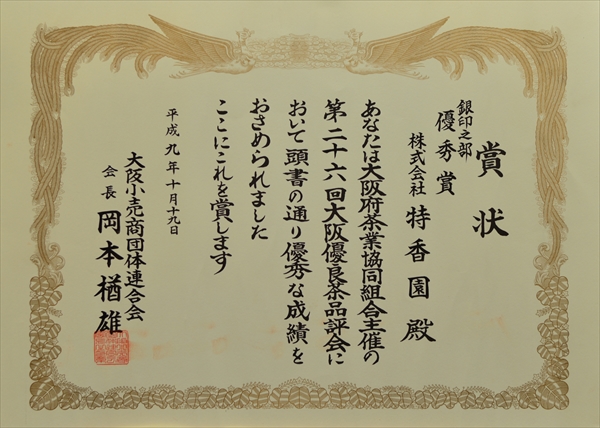 賞状
銀印之部
優秀賞
株式会社 特香園 殿
あなたは大阪府茶業協同組合主催の
第二十六回大阪優良茶品評会に
おいて頭書の通り優秀な成績を
おさめられました
ここにこれを賞します
平成九年十月十九日
大阪小売商団体連合会
会長 岡本楢雄